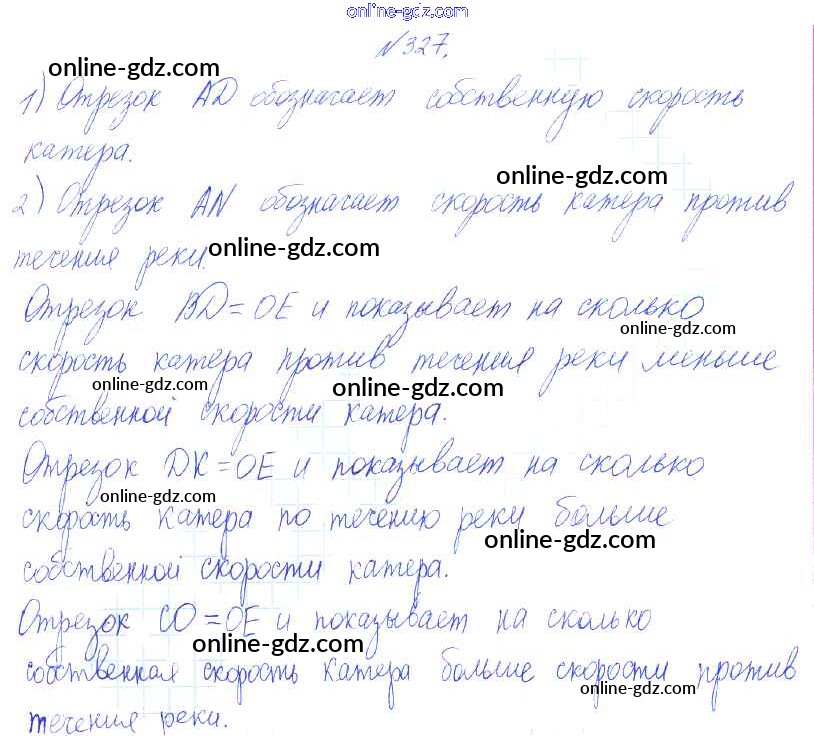 online-gdz.com
№327.
online-gdz.com
1) Отрезок AD обозначает собственную скорость
катера.
online-gdz.com
2) Отрезок AN обозначает скорость катера против
течения реки.
online-gdz.com
Отрезок BD=OE и показывает на сколько
online-gdz.com
скорость катера против течения реки меньше
online-gdz.com
online-gdz.com
собственной скорости катера.
Отрезок DK=OE и показывает на сколько
online-gdz.com
скорость катера по течению реки больше
online-gdz.com
собственной скорости катера.
Отрезок CO=OE и показывает на сколько
online-gdz.com
собственная скорость катера больше скорости против
online-gdz.com
течения реки.